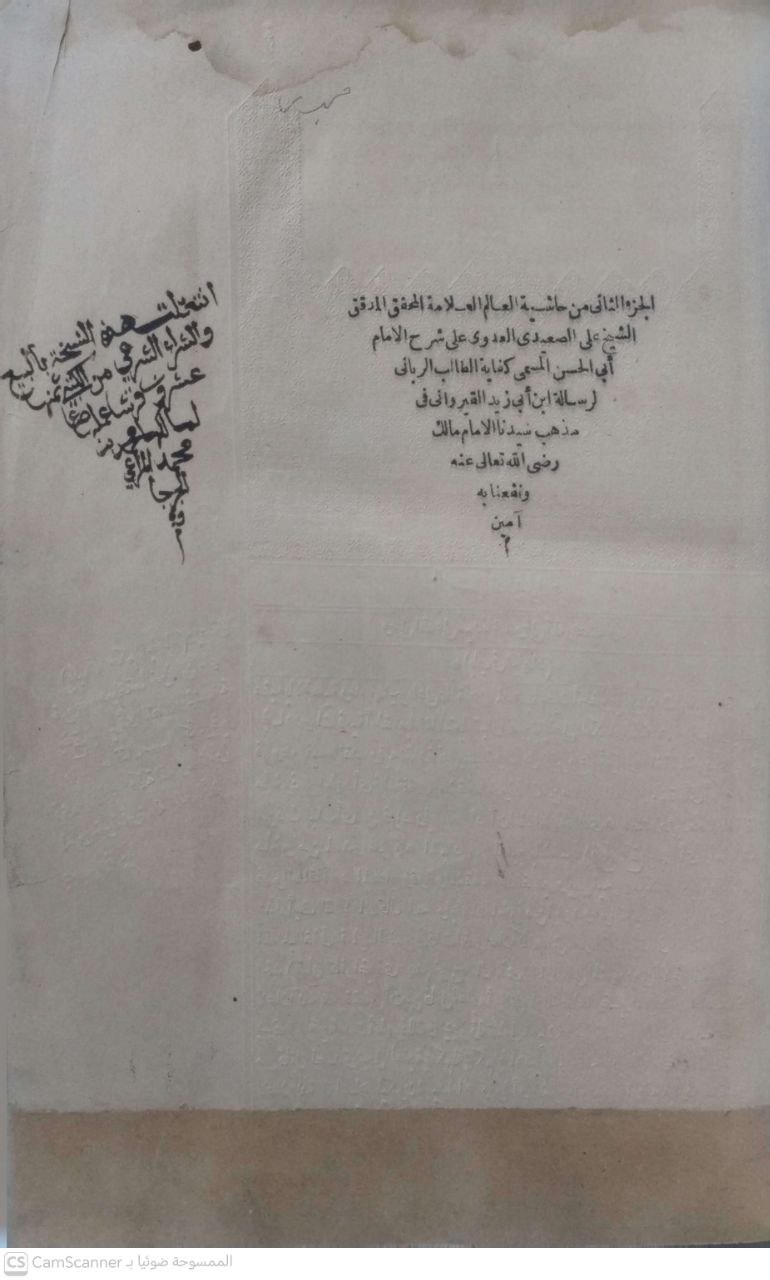 الجزء الثانى من حاشية العالم العلامة المحقق المدقق
الشيخ على الصعيدى العدوى على شرح الامام
أبى الحسن المسمى كفاية الطالب الربانى
لرسالة ابن أبى زيد القيروانى فى
مذهب سيدنا الامام مالك
رضى الله تعالى عنه
ونفعنا به
آمين
م
انتقلت هذه النسخة بالبيع
والشراء الشرعى من
CS CamScanner الممسوحة ضوئيا بـ